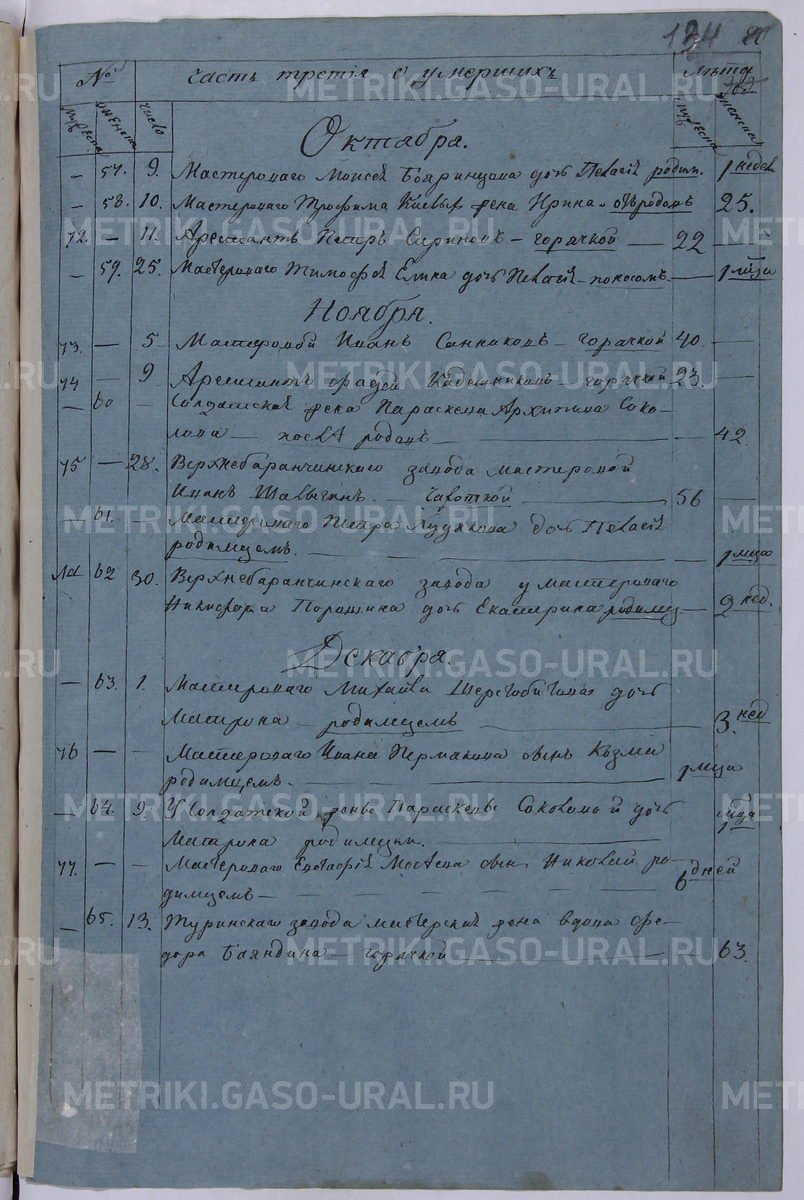 124 80
№ Часть третія о умершихъ Лѣта
мужеска женска число мужеска женска
Октября.
— 57. 9. Мастероваго Моисея Бояринцова дочь Пелагія родим. 1 недел
— 58. 10. Мастероваго Трофима жена Ирина родомъ 25.
72. — 11. Арестантъ Петръ — горячкой — 22 —
— 59. 25. Мастероваго Тимофея дочь Пелагія — поносомъ — 1 м͠ца
Ноября.
73. — 5 Мастеровой Иванъ Санниковъ — горячкой 40 —
74 — 9 Арестантъ Фадей — горячкой 23. —
— 60 — Солдатская жена Параскева Архипова Соко-
лова — послѣ родовъ — — 42
75 — 28. Верхнебаранчинскаго завода мастеровой
Иванъ — чахоткой — 56 —
— 61. — Мастероваго Петра Худякова дочь Пелагія
родимцемъ. — 1 м͠ца
62 30. Верхнебаранчинскаго завода у мастероваго
Никифора Порошина дочь Екатерина родимц — 2 нед.
Декабря.
— 63. 1. Мастероваго Михаила Шерстобитова дочь
Матрона — родимцемъ — 3. нед
76 — — Мастероваго Ивана Пермякова сынъ Козма
родимцемъ. — 1 м͠ца
— 64. 9. У Солдатской жены Параскевы Соколовой дочь
Матрона родимцем. — 1 м͠ца
77. — — Мастероваго Евстафія сынъ Николай ро-
димцемъ — 6 дней
— 65. 13. Туринскаго завода мастерская жена вдова Фе-
дора Бояндина — горячкой — — 63.
METRIKI.GASO-URAL.RU